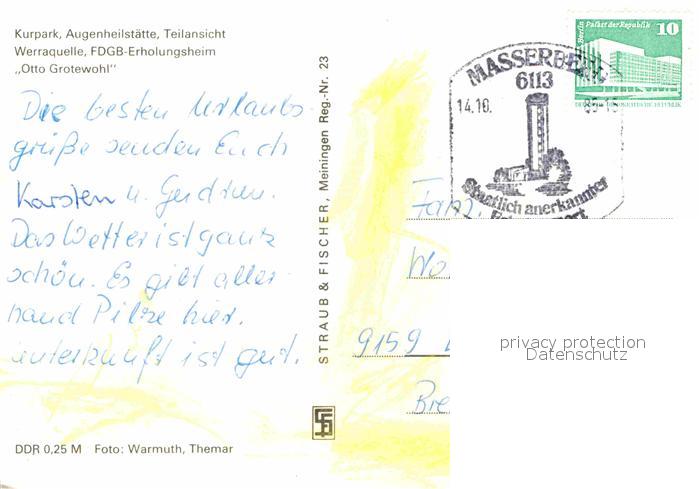 Kurpark, Augenheilstätte, Teilansicht
Werraquelle, FDGB-Erholungsheim
„Otto Grotewohl"
Die besten Urlaubs-
grüße senden Euch
Karsten u. Gudrun.
Das Wetter ist ganz
schön. Es gibt aller-
hand Pilze hier.
Unterkunft ist gut.
DDR 0,25 M Foto: Warmuth, Themar
STRAUB & FISCHER, Meiningen Reg.-Nr. 23
Berlin Palast der Republik
10
MASSERBERG
6113
14.10.
Staatlich anerkannter
Fam.
Wo
9159
Bre
privacy protection
Datenschutz